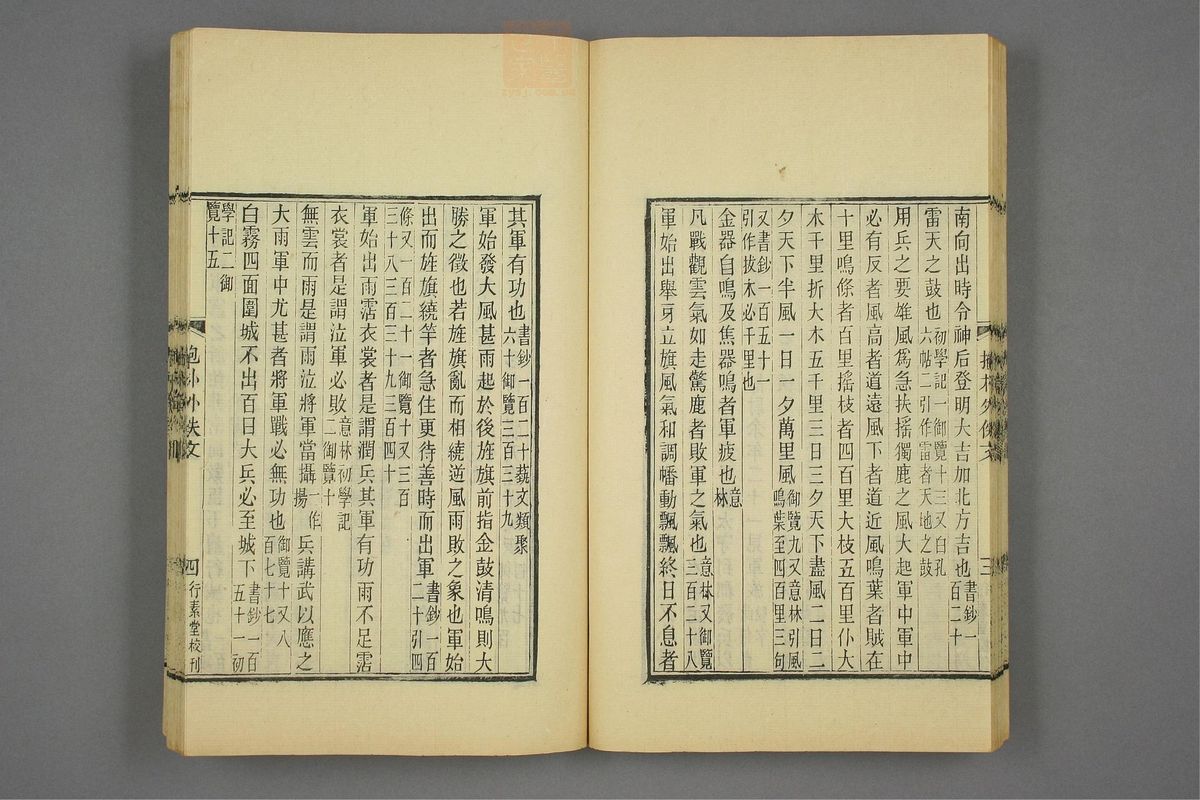 南向出時令神后登明大吉加北方吉也書鈔一百二十
雷天之鼓也初學記一御覽十三又白孔六帖二引作雷者天地之鼓
用兵之要雄風爲急扶搖獨鹿之風大起軍中軍中
必有反者風高者道遠風下者道近風鳴葉者賊在
十里鳴條者百里搖枝者四百里大枝五百里仆大
木千里折大木五千里三日三夕天下盡風二日二
夕天下半風一日一夕萬里風御覽九又意林引風鳴葉至四百里三句
又書鈔一百五十一引作拔木必千里也
金器自鳴及焦器鳴者軍疲也意林
凡戰觀雲氣如走驚鹿者敗軍之氣也意林又御覽三百二十八
軍始出舉牙立旗風氣和調幡動飄飄終日不息者
三
其軍有功也書鈔一百二十藝文類聚六十御覽三百三十九
軍始發大風甚雨起於後旌旗前指金鼓清鳴則大
勝之徵也若旌旗亂而相繞逆風雨敗之象也軍始
出而旌旗繞竿者急住更待善時而出軍書鈔一百二十引四
條又一百二十一御覽十又三百三十八三百三十九三百四十
軍始出雨霑衣裳者是謂潤兵其軍有功雨不足霑
衣裳者是謂泣軍必敗意林初學記二御覽十
無雲而雨是謂雨泣將軍當攝一作揚兵講武以應之
大雨軍中尤甚者將軍戰必無功也御覽十又八百七十七
白霧四面圍城不出百日大兵必至城下書鈔一百五十一初
學記二御覽十五
四
行素堂校刊